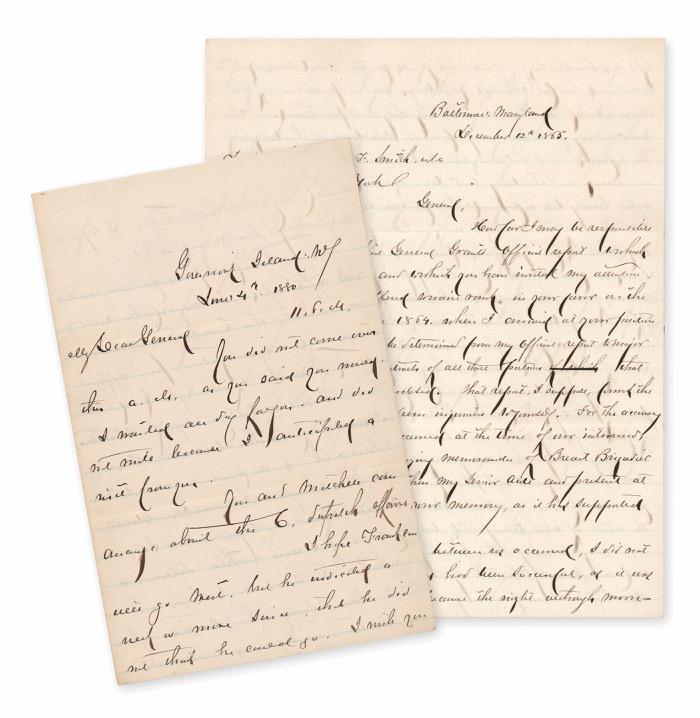 Governor's Island. N.Y.
June 4th 1880
11. P. M.
My Dear General
You did not come over
this a. M. as you said you
I waited all day for you and did
not write because I anticipated a
visit from you.
You and Mitchell can
arrange about the 6.
I hope Franklin
will go West, but he indicated a
week or more since that he did
not think he could go. I wish you
Baltimore Maryland
December 12th 1865.
F. Smith
York
General,
How far I may be responsible
General Grants Official report which
and which you have invited my attention
in your favor on the
1864. when I arrived at your position
be determined from my official report to Major
of all those portions which that
That report, I suppose, formed the
For the accuracy
occurred at the time of our interview,
memoranda of Brevet Brigadier
then my Senior aide and present at
our memory, as it has supported
between us occurred, I did not
had been successful, as it was
because the night although moon-